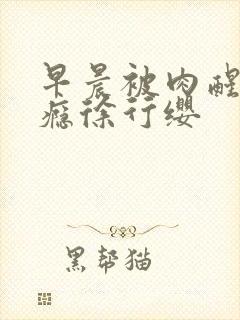 早晨被肉醒
瘾徐行缨
黑帮猫